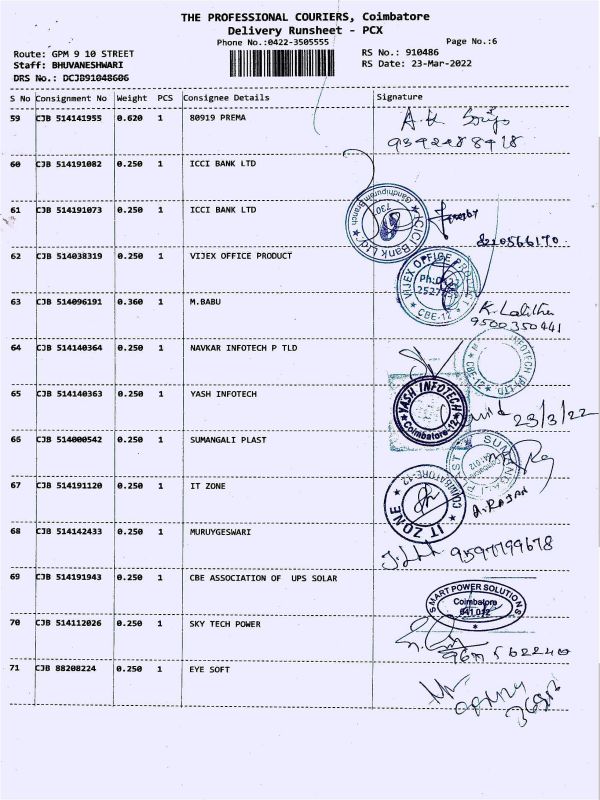 THE PROFESSIONAL COURIERS, Coimbatore
Delivery Runsheet - PCX
Phone No.:0422-3505555
Page No.:6
Route: GPM 9 10 STREET
RS No.: 910486
Staff: BHUVANESHWARI
RS Date: 23-Mar-2022
DRS No.: DCJB91048606
S No Consignment No Weight PCS Consignee Details Signature
59 CJB 514141955 0.620 1 80919 PREMA
60 CJB 514191082 0.250 1 ICCI BANK LTD
61 CJB 514191073 0.250 1 ICCI BANK LTD
ICICI Bank Ltd
Gandhipuram Branch
730
62 CJB 514038319 0.250 1 VIJEX OFFICE PRODUCT
VIJEX OFFICE PRODUCT
CBE-12
63 CJB 514096191 0.360 1 M.BABU
K. Lalitha
9500350441
64 CJB 514140364 0.250 1 NAVKAR INFOTECH P TLD
INFOTECH (P) LTD
CBE-12
65 CJB 514140363 0.250 1 YASH INFOTECH
YASH INFOTECH
Coimbatore-12
23/3/22
66 CJB 514000542 0.250 1 SUMANGALI PLAST
67 CJB 514191120 0.250 1 IT ZONE
IT ZONE
COIMBATORE-12
A. RAJAN
68 CJB 514142433 0.250 1 MURUYGESWARI
9597799678
69 CJB 514191943 0.250 1 CBE ASSOCIATION OF UPS SOLAR
SMART POWER SOLUTIONS
Coimbatore
641 012
70 CJB 514112026 0.250 1 SKY TECH POWER
71 CJB 88208224 0.250 1 EYE SOFT